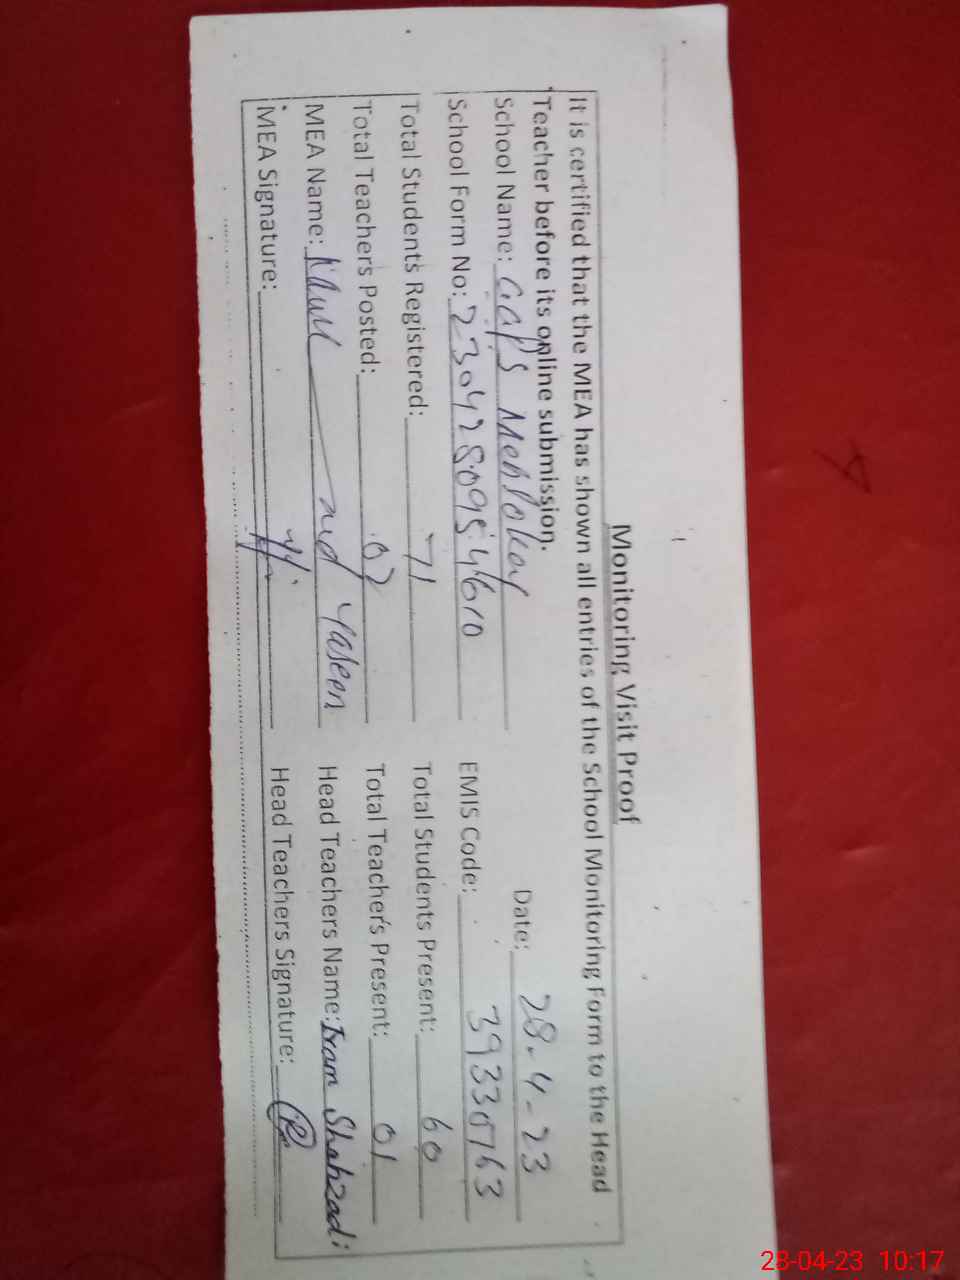 Monitoring Visit Proof
It is certified that the MEA has shown all entries of the School Monitoring Form to the Head
Teacher before its online submission.
Date: 28-4-23
School Name: GGPS
School Form No: 2304280954610
EMIS Code: 39330763
Total Students Registered: 71
Total Students Present: 60
Total Teachers Posted: 02
Total Teacher's Present: 01
MEA Name: Yaseen
Head Teachers Name: Iram Shahzadi
MEA Signature:
Head Teachers Signature:
28-04-23 10:17